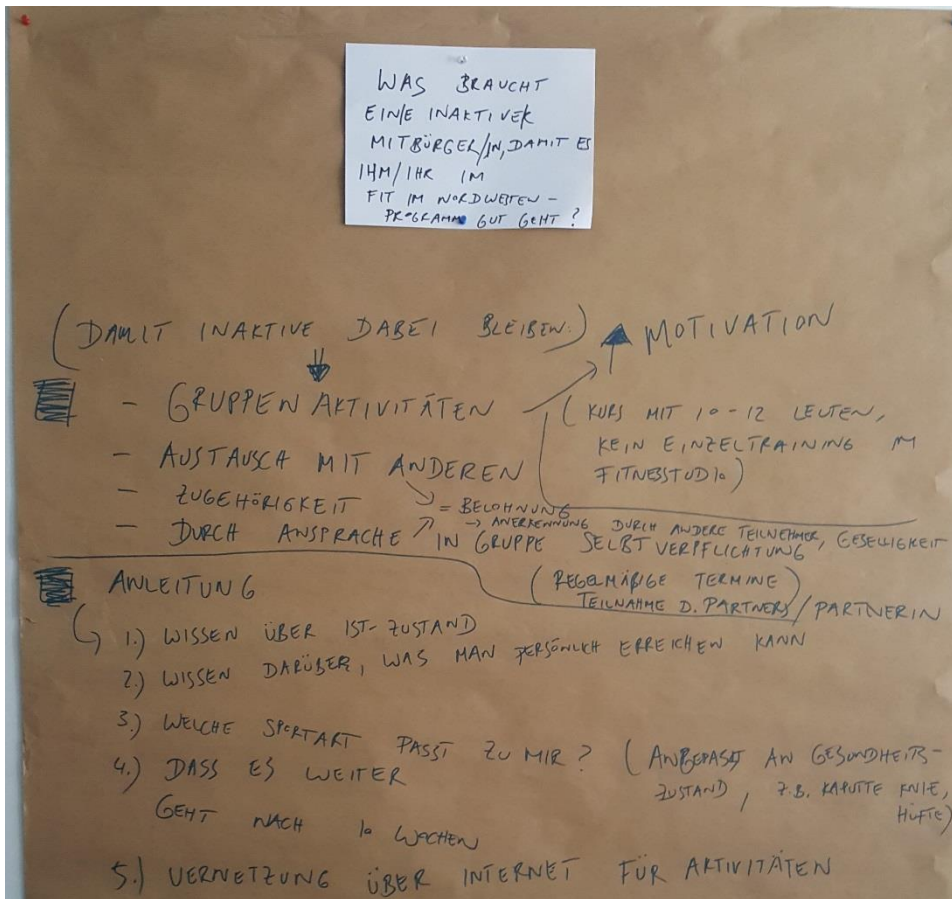 WAS BRAUCHT
EIN/E INAKTIVE/R
MITBÜRGER/IN, DAMIT ES
IHM/IHR IM
FIT IM NORDWESTEN -
PROGRAMM GUT GEHT?
(DAMIT INAKTIVE DABEI BLEIBEN:)
MOTIVATION
- GRUPPENAKTIVITÄTEN
(KURS MIT 10-12 LEUTEN,
KEIN EINZELTRAINING IM
FITNESSTUDIO)
- AUSTAUSCH MIT ANDEREN
- ZUGEHÖRIGKEIT
= BELOHNUNG
→ ANERKENNUNG DURCH ANDERE TEILNEHMER, GESELLIGKEIT
- DURCH ANSPRACHE IN GRUPPE SELBTVERPFLICHTUNG
(REGELMÄßIGE TERMINE)
TEILNAHME D. PARTNERS/PARTNERIN
ANLEITUNG
1.) WISSEN ÜBER IST-ZUSTAND
2.) WISSEN DARÜBER, WAS MAN PERSÖNLICH ERREICHEN KANN
3.) WELCHE SPORTART PASST ZU MIR? (ANGEPASST AN GESUNDHEITS-
ZUSTAND, Z.B. KAPUTTE KNIE,
HÜFTE)
4.) DASS ES WEITER
GEHT NACH 10 WOCHEN
5.) VERNETZUNG ÜBER INTERNET FÜR AKTIVITÄTEN